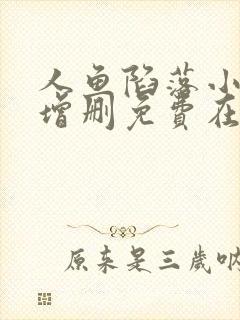 人鱼陷落小
增删免费在
原来是三岁呐